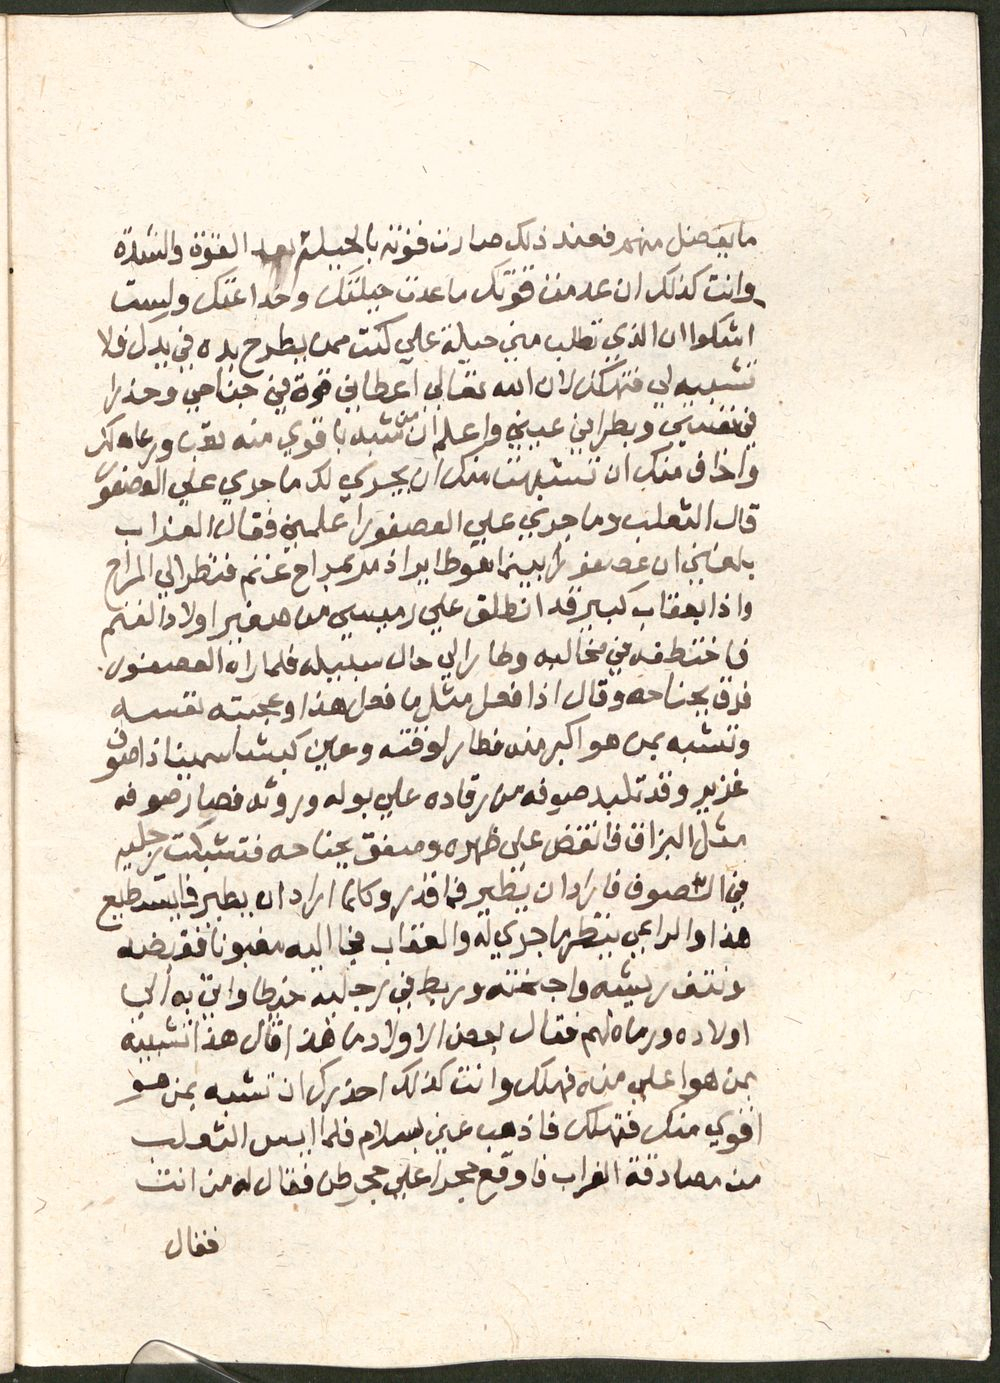 ما يفضل منهم فعند ذلك صارت قوته بالحيلة بعد القوة والشدة
وانت كذلك ان عدمت قوتك ما عدت حيلتك وخداعتك وليست
اشكوا ان الذي تطلب مني حيلة علي كنت ممن يطرح يده في يدك فلا
تشبيه لي فتهلك لان الله تعالي اعطاني قوة في جناحي وحذرا
في نفسي وبطراني عيني واعلم ان من تشبه باقوي منه تعب وربما هلك
واخاف منك ان تشبهت منك ان يجري لك ما جري علي العصفور
قال الثعلب وما جري علي العصفور اعلمني فقال الغراب
بلغني ان عصفورا بينما هو طاير اذ مر بمراح غنم فنظر الي المراح
واذا بعقاب كبير قد انطلق علي رميسي من صغير اولاد الغنم
فاختطفه في مخالبه وطار الي حال سبيله فلما راه العصفور
فرق بجناحه وقال اذا فعل مثل ما فعل هذا وعجبته نفسه
وتشبه بمن هو اكبر منه فطار لوقته وعين كبشا سمينا ذا صوف
غزير وقد تلبد صوفه من رقاده علي بوله وروثه فصار صوفه
مثل البزاق فانقض علي ظهره وصفق بجناحه فتشبكت رجليه
في الصوف فاراد ان يطير فما قدر وكلما اراد ان يطير فما يستطيع
هذا والراعي ينظر ما جري له والعقاب فجا اليه مغبونا فقبضه
ونتف ريشه واجنحته وربط في رجليه خيطا واتي به الي
اولاده ورماه لهم فقال بعض الاولاد ما هذا قال هذا تشبيه
بمن هو اعلي منه فهلك وانت كذلك احذرك ان تشبه بمن هو
اقوي منك فتهلك فاذهب عني بسلام فلما ايس الثعلب
من مصادقة الغراب فاوقع حجرا علي حجر طن فقال له من انت
فقال